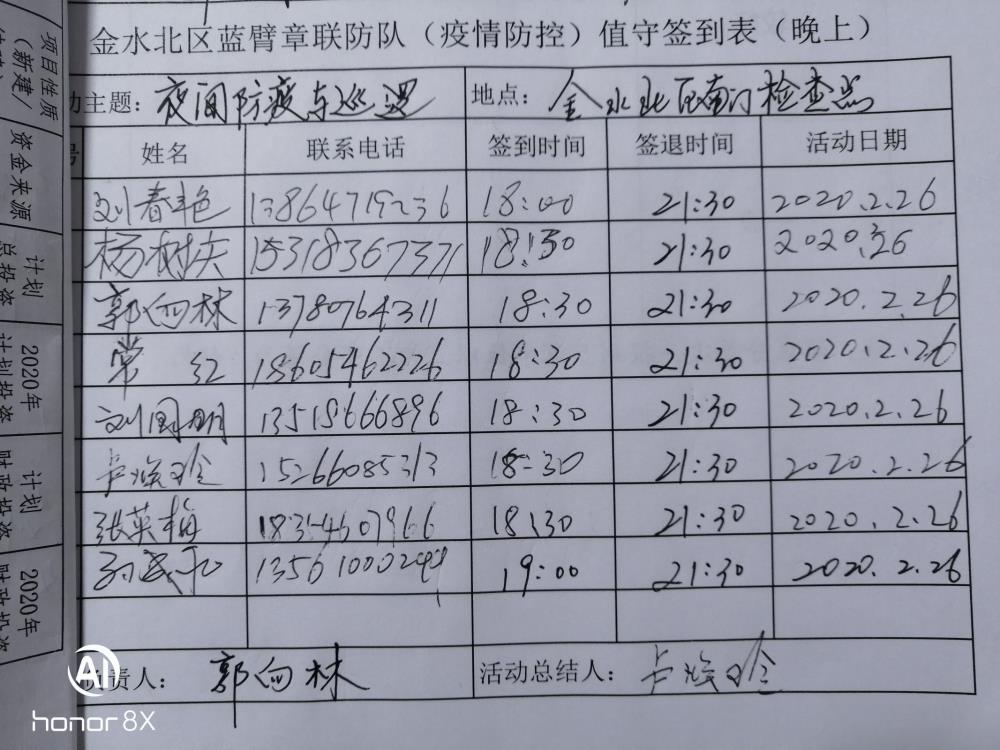 金水北区蓝臂章联防队（疫情防控）值守签到表（晚上）
动主题：夜间防疫与巡逻 地点：金水北区南门检查点
号 姓名 联系电话 签到时间 签退时间 活动日期
刘春艳 13864719236 18:00 21:30 2020.2.26
杨树庆 15318367371 18:30 21:30 2020.2.26
郭向林 13780764311 18:30 21:30 2020.2.26
常红 18605462226 18:30 21:30 2020.2.26
刘国明 13518666896 18:30 21:30 2020.2.26
卢焕玲 15266085313 18:30 21:30 2020.2.26
张英梅 18354607966 18:30 21:30 2020.2.26
13561000244 19:00 21:30 2020.2.26
负责人：郭向林 活动总结人：卢焕玲
项目性质
（新建/
资金来源
计划
总投资
2020年
计划投资
计划
财政投资
2020年
财政投资
AI
honor 8X